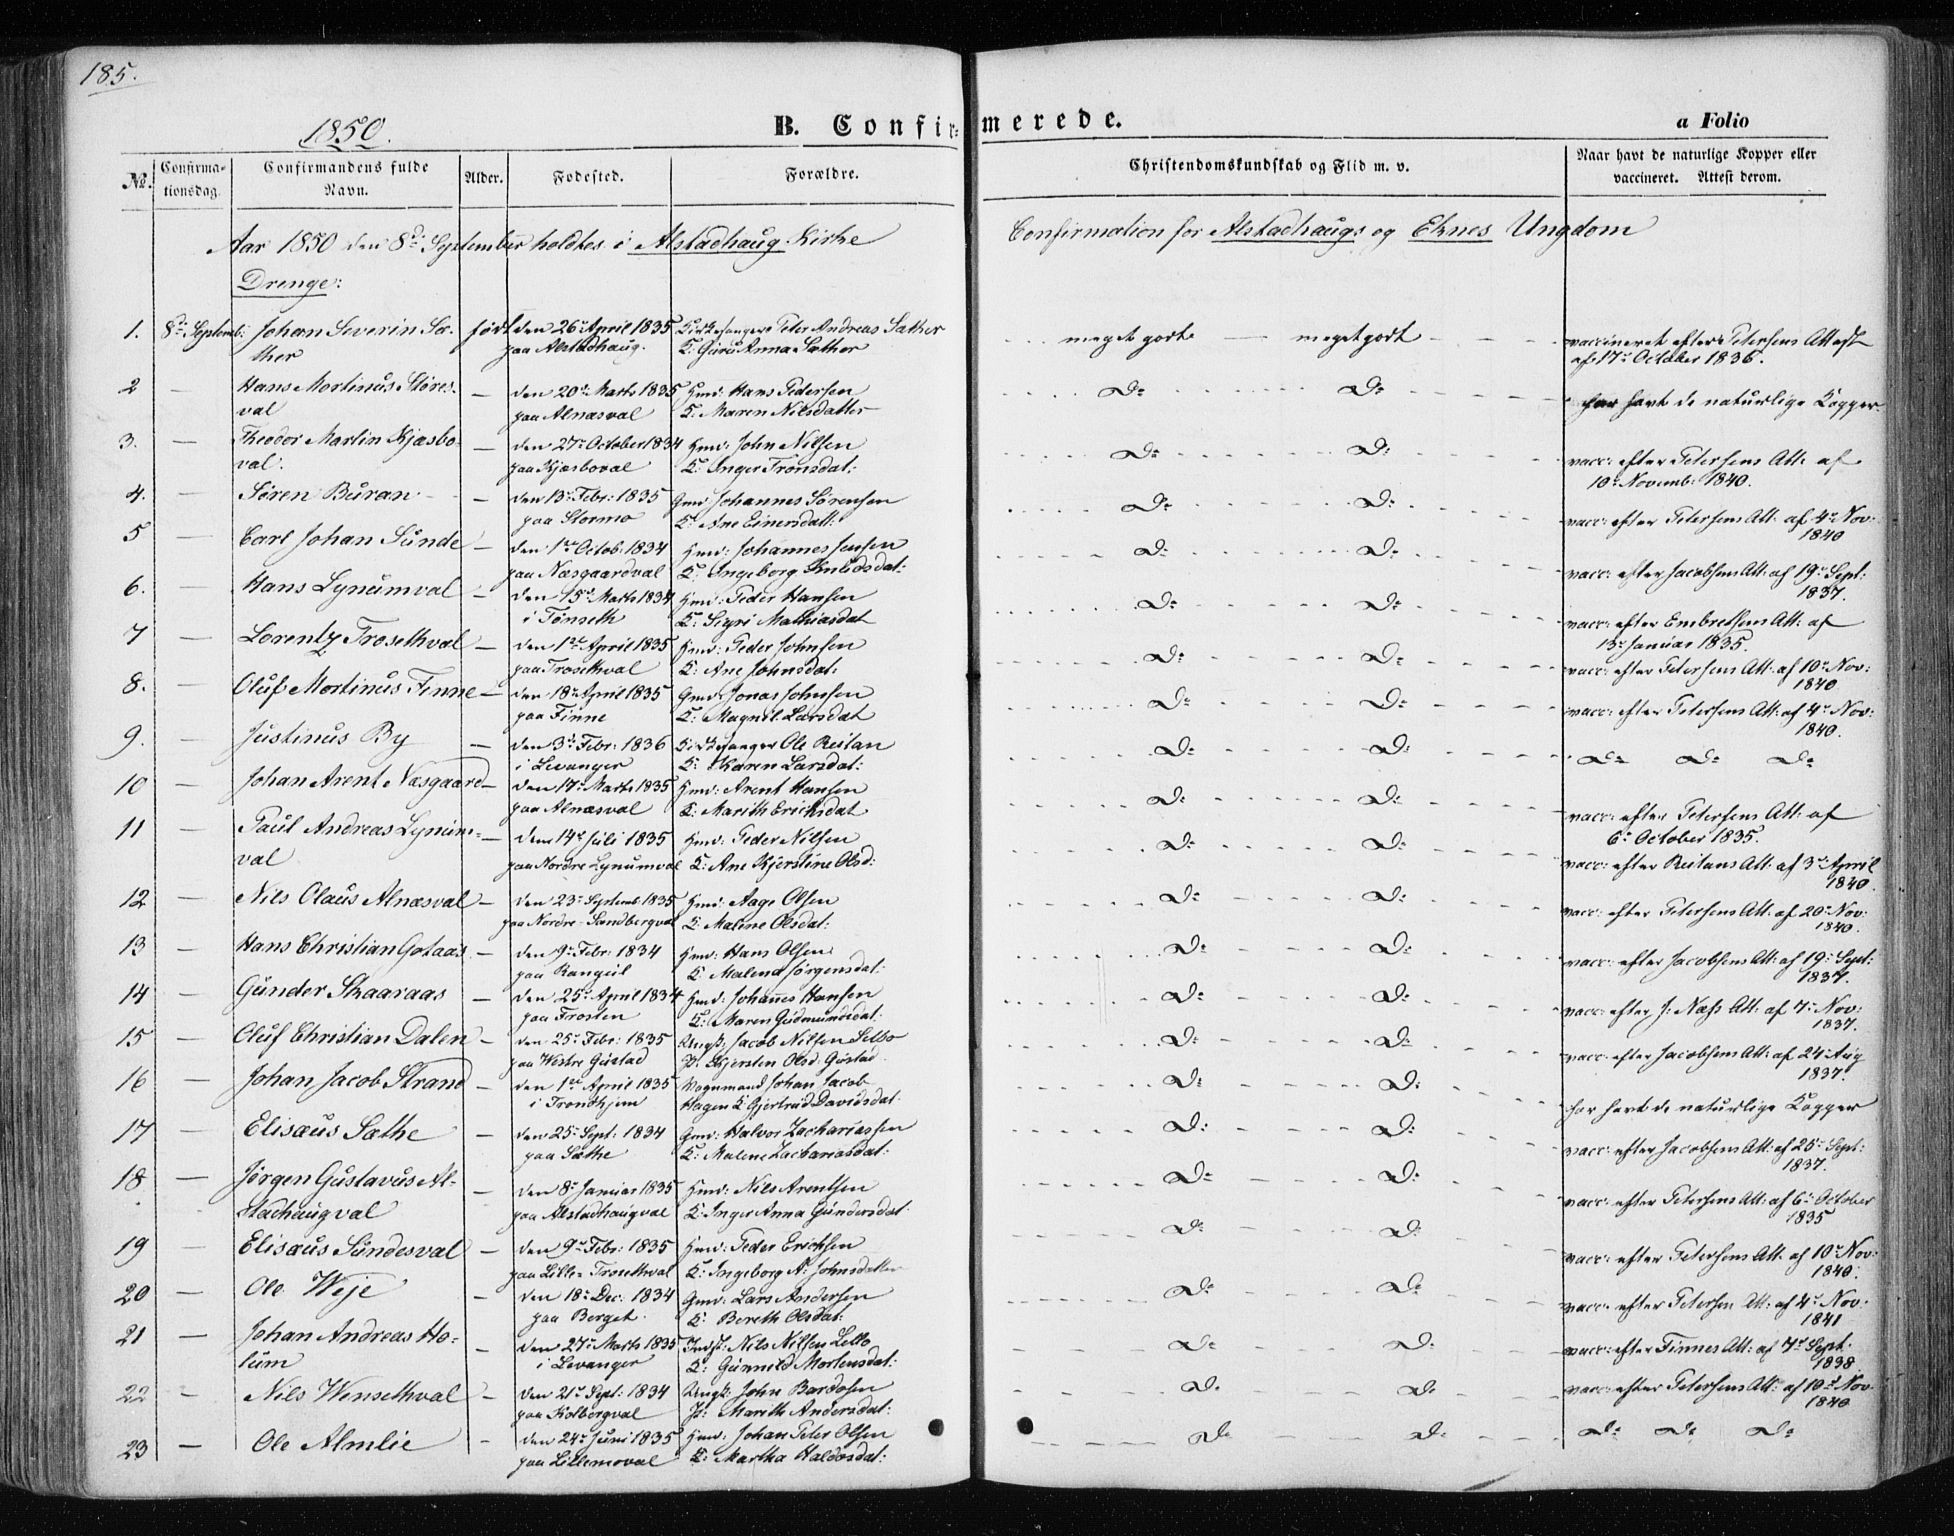 185.
1850.
B. Confir=merede.
a Folio
No.
Confirma-
tionsdag.
Confirmandens fulde
Navn.
Alder.
Fødested.
Forældre.
Christendomskundskab og Flid m. v.
Naar havt de naturlige Kopper eller
vaccineret. Attest derom.
Aar 1850 den 8de September holdtes i Alstadhaug Kirke Confirmation for Alstadhaugs og Eknes Ungdom
Drenge:
1. 8de Septemb: Johan Severin Sæ- født den 26de April 1835 Kirkesanger Peter Andreas Sæther meget godt — meget godt vaccineret efter Petersens Attest
ther paa Alstadhaug. K: Guru Anna Sæther af 17de October 1836.
2 — Hans Mortinus Støres- — den 20de Marts 1835 Hmd: Hans Pedersen Do Do har havt de naturlige Kopper
val paa Alnæsval K: Maren Nilsdatter
3. — Theodor Martin Kjæsbo- — den 27de October 1834 Hmd: John Nilsen Do Do vacc: efter Petersens Att: af
val. paa Kjæsboval K: Inger Tronsdat: 10de Novemb: 1840.
4. — Søren Buran — den 13de Febr: 1835 Gmd: Johannes Sørensen Do Do vacc: efter Petersens Att: af 4de Nov:
paa Stormo K: Ane Einersdatt: 1840
5 — Carl Johan Sunde — den 1ste Octob: 1834 Hmd: Johannes Jensen Do Do vacc: efter Jacobsens Att: af 19de Sept:
paa Næsgaardval K: Ingeborg Knudsdat: 1837.
6. — Hans Lynumval — den 15de Marts 1834 Hmd: Peder Hansen Do Do vacc: efter Embretsens Att: af
i Tønseth K: Sigri Mathiasdat 13de Januar 1835.
7 — Lorentz Trosethval — den 1ste April 1835 Hmd: Peder Johnsen Do Do vacc: efter Petersens Att: af 10de Nov:
paa Trosethval K: Ane Johnsdat: 1840
8. — Oluf Mortinus Finne — den 18de April 1835 Gmd: Jonas Johnsen Do Do vacc: efter Petersens Att: af 4de Nov:
paa Finne K: Magnil Larsdat 1840.
9. — Justinus By — den 3de Febr: 1836 Kirkesanger Ole Reitan Do Do Do Do Do
i Levanger K: Karen Larsdat:
10 — Johan Arent Næsgaard — den 17de Marts 1835 Hmd: Arent Hansen Do Do vacc: efter Petersens Att: af
paa Alnæsval K: Marith Erichsdat 6te October 1835.
11 — Paul Andreas Lynum- — den 14de Juli 1835 Hmd: Peder Nilsen Do Do vacc: efter Reitans Att: af 3de April
val paa Nordre Lynumval K: Ane Kjerstine Olsd: 1840.
12 — Nils Olaus Alnæsval — den 23de Septemb: 1835 Hmd: Aage Olsen Do Do vacc: efter Petersens Att: af 20de Nov:
paa Nordre-Sundbergval K: Maline Olsdat: 1840.
13 — Hans Christian Gotaas — den 9de Febr: 1834 Hmd: Hans Olsen Do Do vacc: efter Jacobsens Att: af 19de Sept:
paa Rangul K: Malena Jørgensdat: 1837.
14 — Gunder Skaaraas — den 25de April 1834 Hmd: Johannes Hansen Do Do vacc: efter J: Næss Att: af 7de Nov:
paa Frosten K: Maren Gudmundsdat: 1837.
15 — Oluf Christian Dalen — den 25de Febr: 1835 Ungk: Jacob Nilsen Selbo Do Do vacc: efter Jacobsens Att: af 24de Aug
paa Westre Gustad P: Kjersten Olsd Gustad 1837.
16 — Johan Jacob Strand — den 1ste April 1835 Vognmand Johan Jacob Do Do har havt de naturlige Kopper
i Trondhjem Hagen K: Gjertrud Davidsdat:
17 — Elisæus Sathe — den 25de Sept: 1834 Gmd: Halvor Zachariassen Do Do vacc: efter Jacobsens Att: af 25de Sept:
paa Sathe K: Malene Zachariasdat: 1837.
18 — Jørgen Gustavus Al- — den 8de Januar 1835 Hmd: Nils Arentsen Do Do vacc: efter Petersens Att: af 6te October
stadhaugval paa Alstadhaugval K: Inger Anna Gundersdat: 1835
19 — Elisæus Sundesval — den 9de Febr: 1835 Hmd: Peder Erichsen Do Do vacc: efter Petersens Att: af 10de Nov:
paa Lille-Trosethval K: Ingeborg A: Johnsdatter 1840.
20 — Ole Weje — den 18de Dec. 1834 Gmd: Lars Andersen Do Do vacc: efter Petersen Att: af 4de Nov:
paa Berget. K: Bereth Olsdat: 1841
21 — Johan Andreas Ho- — den 27de Marts 1835 Indst: Nils Nilsen Lello Do Do vacc: efter Finnes Att: af 7de Sept.
lum i Levanger K: Gunnild Mortensdat: 1838.
22 — Nils Wensethval — den 21de Sept: 1834 Ungk: John Bardosen Do Do vacc: efter Petersens Att: af 10de Nov.
paa Kolbergval P: Marith Andersdat: 1840
23 — Ole Almlie — den 24de Juni 1835 Hmd: Johan Peter Olsen Do Do Do Do Do
paa Lillemoval K: Martha Haldosdat: